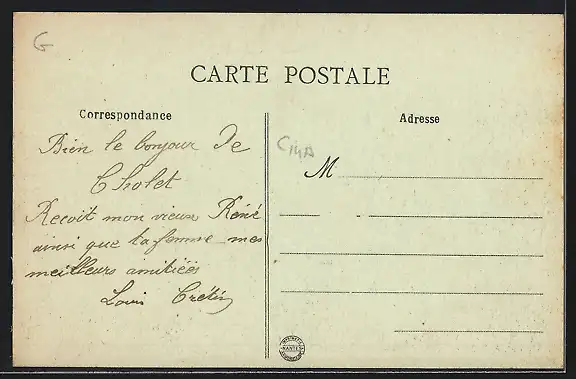 G
CARTE POSTALE
Correspondance
Adresse
Bien le bonjour De
Cholet
Recoit mon vieux René
ainsi que ta femme mes
meilleurs amitiées
Louis Crétin
C14A
M
NANTES